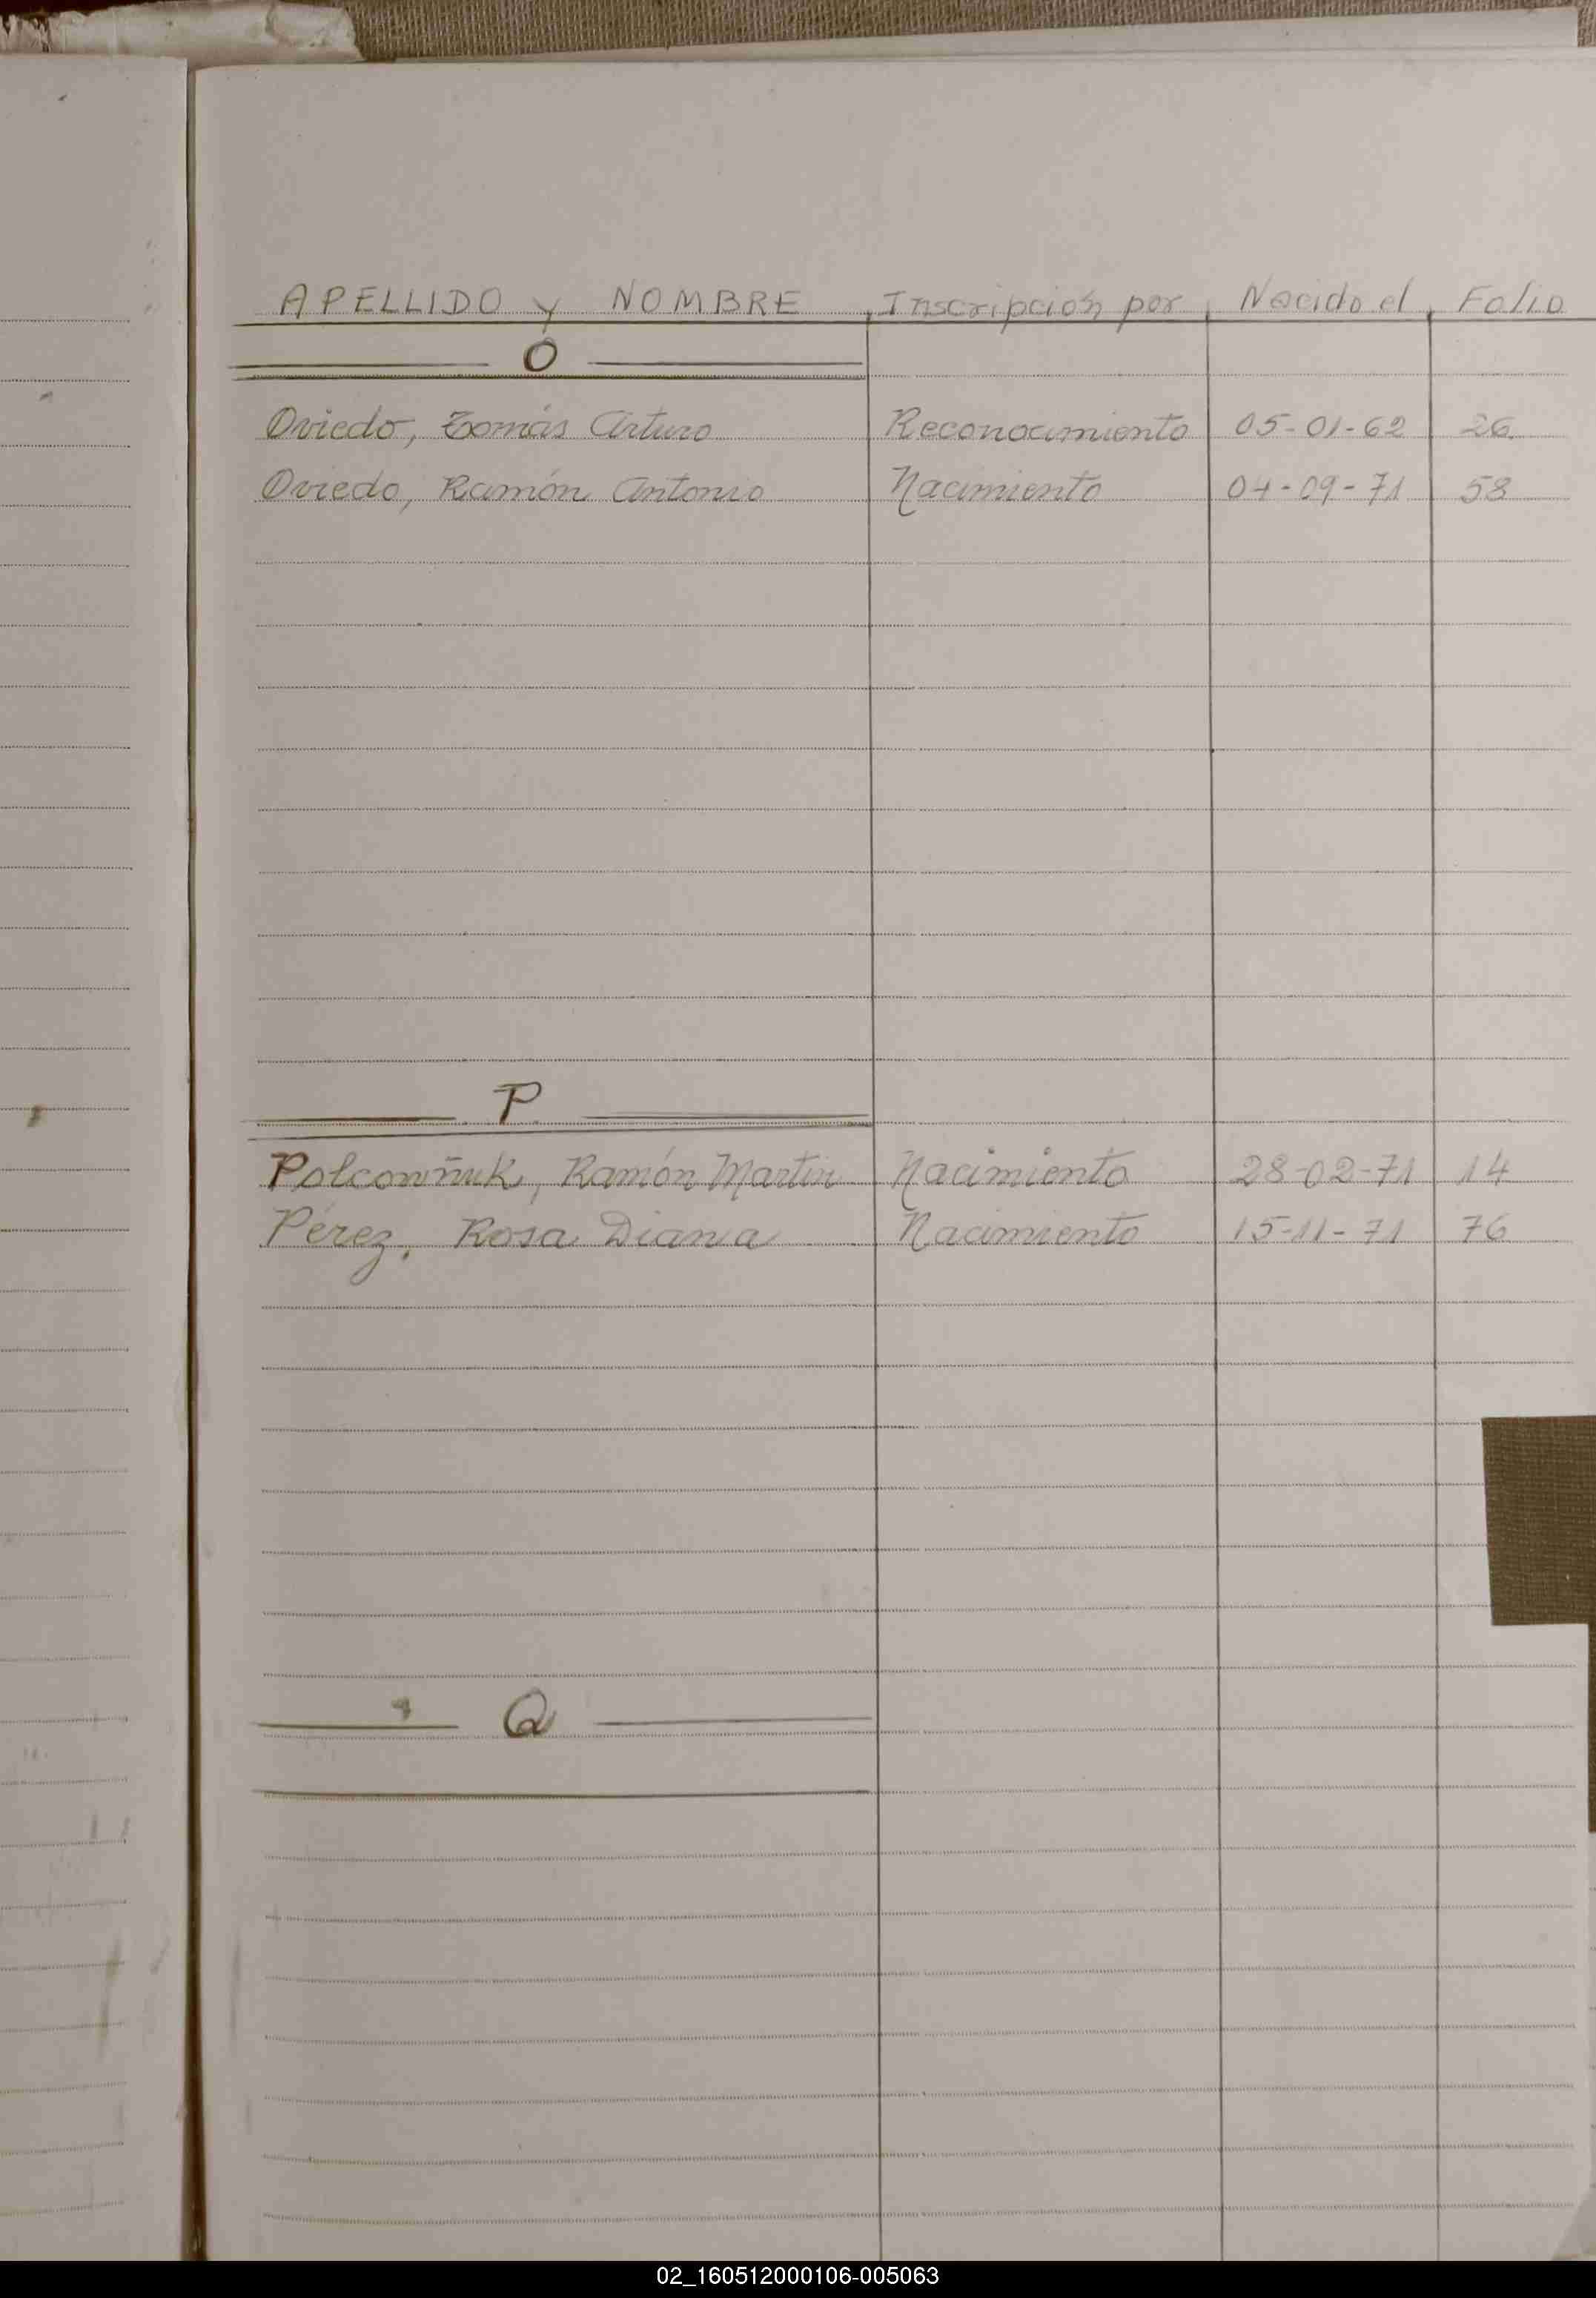 APELLIDO y NOMBRE Inscripción por Nacido el Folio
O
Oviedo, Tomás Arturo Reconocimiento 05-01-62 26
Oviedo, Ramón Antonio Nacimiento 04-09-71 58
P
Polcowñuk, Ramón Martin Nacimiento 28-02-71 14
Pérez, Rosa Diana Nacimiento 15-11-71 76
Q
02_160512000106-005063